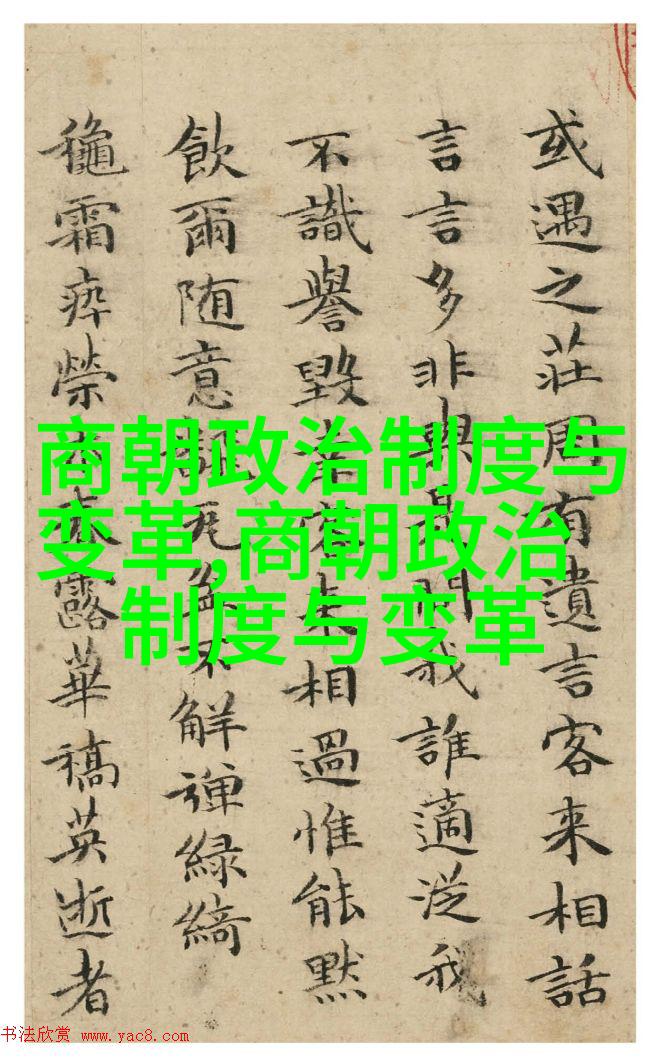 或遇之莊周有遺言客来相話
言言多非我誰適従我
不識譽毀相過惟能黙
飲爾随意不解弹緑綺
龝霜瘁榮露華槁英逝者
商朝政治制度与
变革,商朝政治
制度与变革
书法欣赏 www.yac8.com